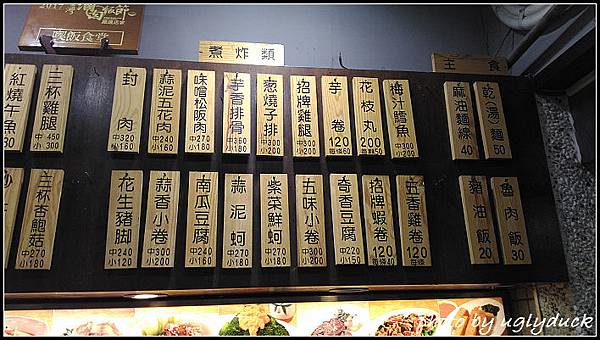 2017
滷肉飯節
喫飯食堂
煮炸類
主食
紅燒午魚
三杯雞腿
中 450
小 300
封肉
中320
小120
蒜泥五花肉
中240
小160
味噌松阪肉
中270
小180
芋香排骨
中360
小180
蔥燒子排
中300
小180
招牌雞腿
中300
小100
芋卷
120
每條60
花枝丸
200
梅汁鱈魚
中300
小200
麻油麵線
40
乾(湯)麵
50
三杯杏鮑菇
中270
小180
花生豬腳
中240
小120
蒜香小卷
中300
小200
南瓜豆腐
中240
小160
蒜泥蚵
中270
小180
紫菜鮮蚵
中270
小180
五味小卷
中300
小200
奇香豆腐
中220
小150
招牌蝦卷
120
中240
五香雞卷
120
中240
豬油飯
30
魯肉飯
30
photo by uglyduck